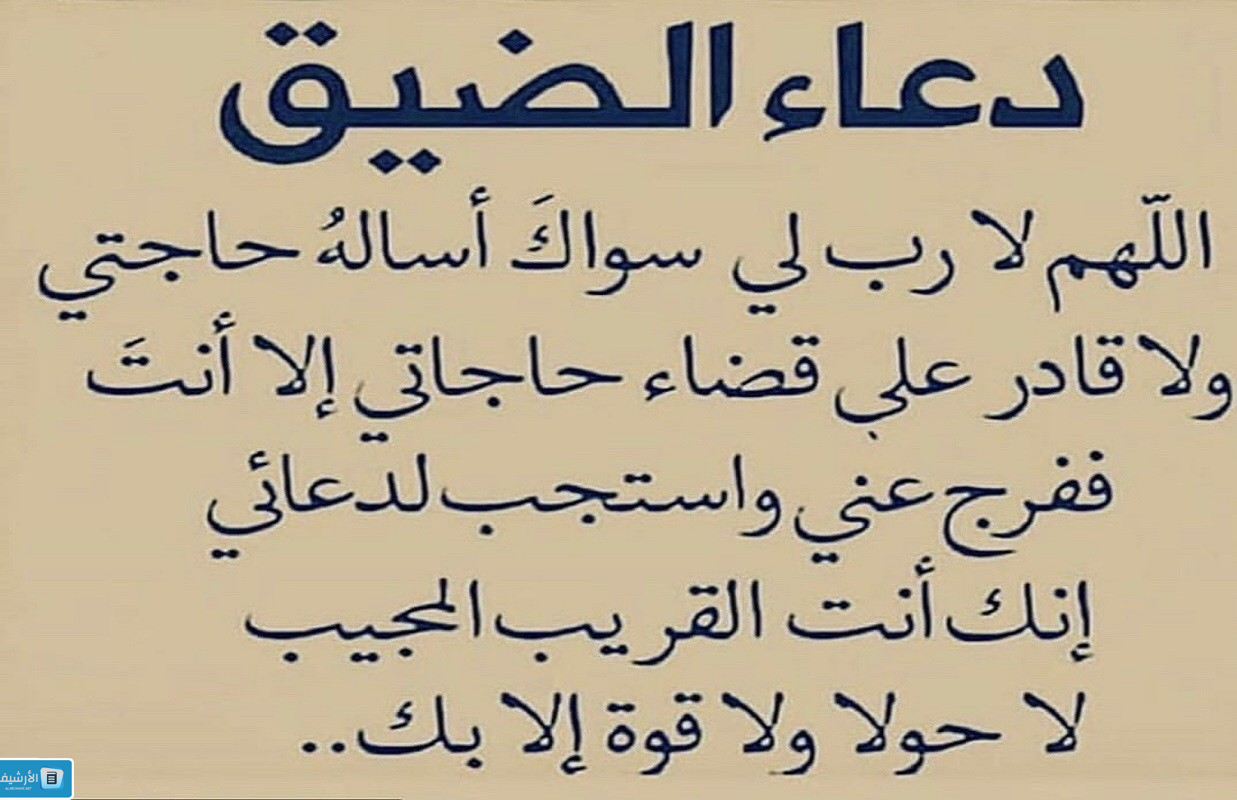 دعاء الضيق
اللّهم لا رب لي سواكَ أسالهُ حاجتي
ولا قادر علي قضاء حاجاتي إلا أنتَ
ففرج عني واستجب لدعائي
إنك أنت القريب المجيب
لا حولا ولا قوة إلا بك..
الأرشيف